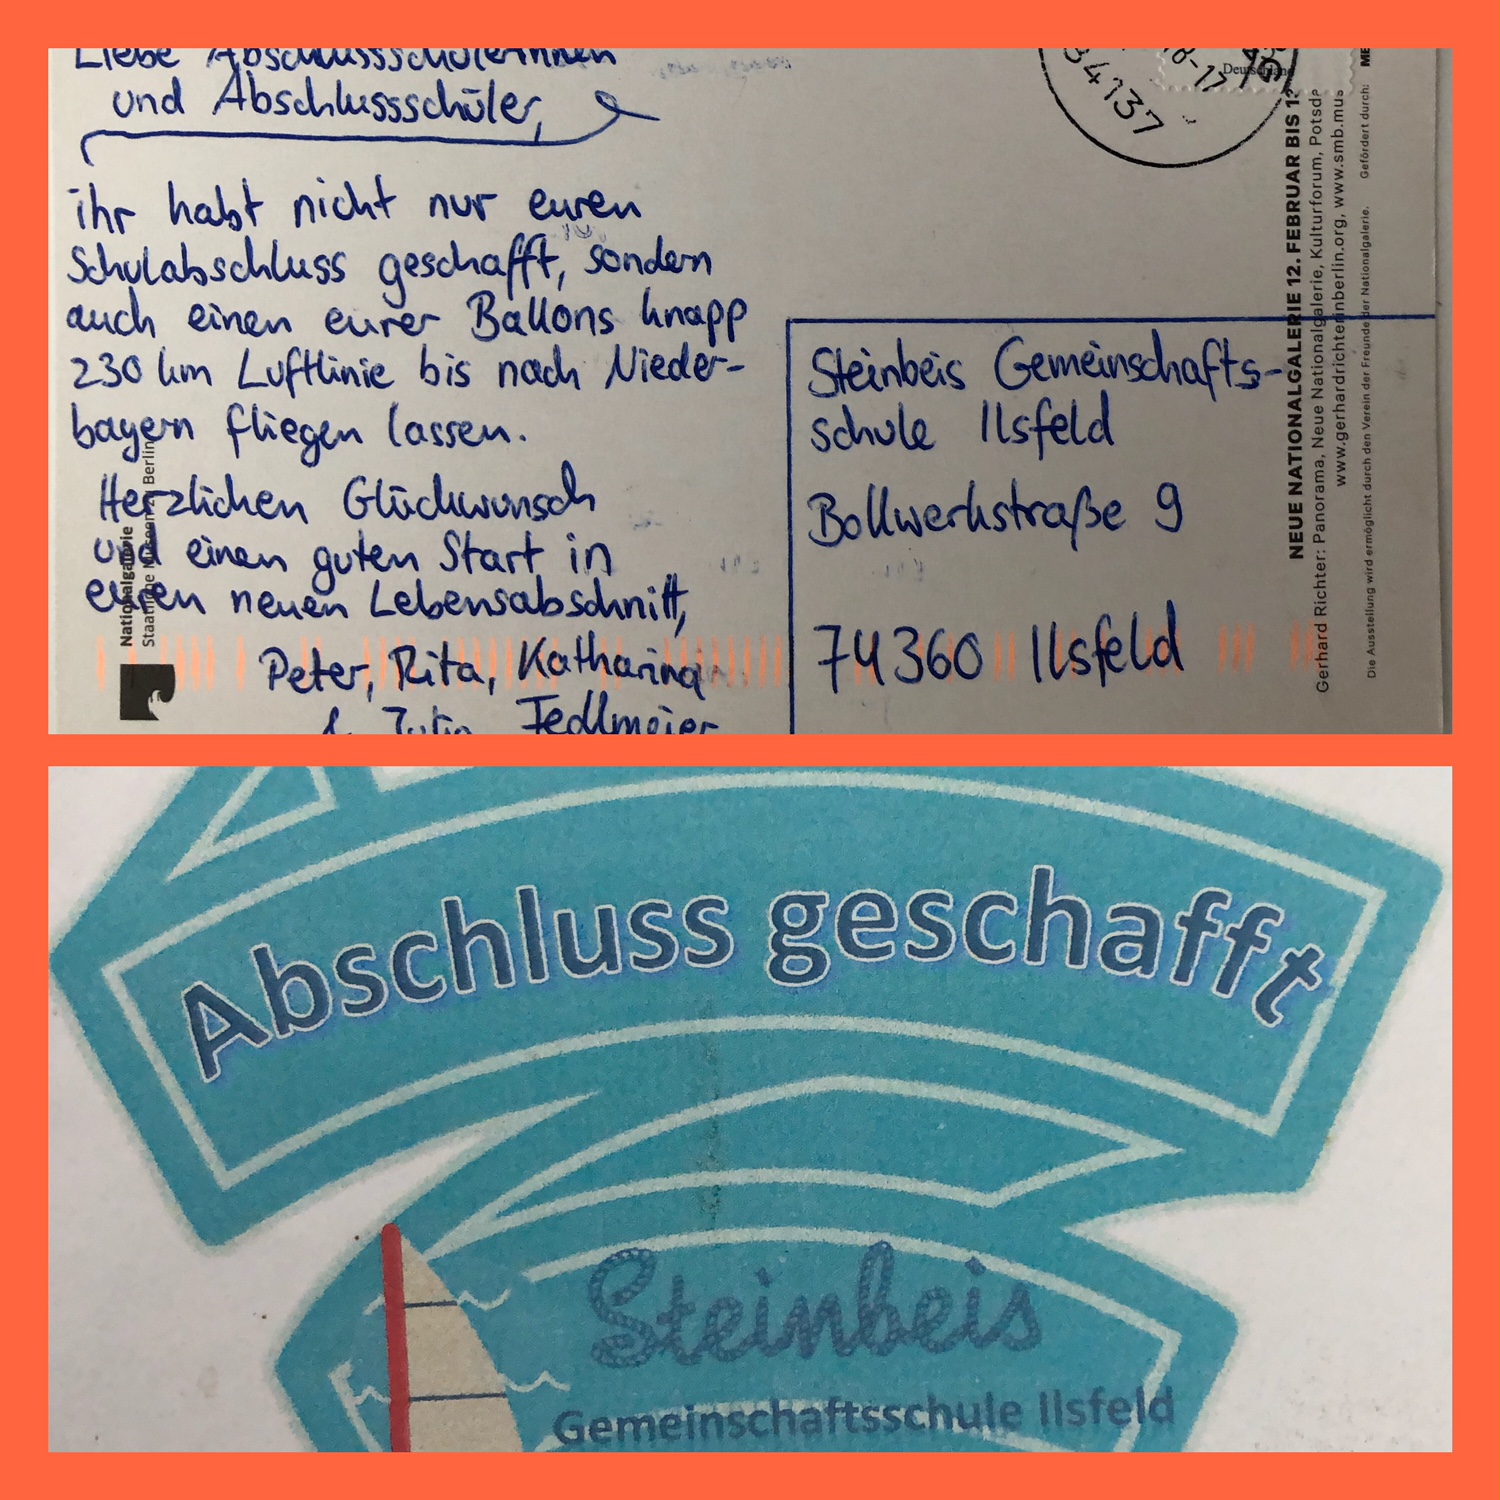 Liebe Abschlussschülerinnen
und Abschlussschüler,
ihr habt nicht nur euren
Schulabschluss geschafft, sondern
auch einen eurer Ballons knapp
230 km Luftlinie bis nach Nieder-
bayern fliegen lassen.
Herzlichen Glückwunsch
und einen guten Start in
euren neuen Lebensabschnitt,
Peter, Rita, Katharina
& Julia Fedlmeier
Nationalgalerie
Staatliche Museen zu Berlin
34137
18-17
Deutschland
Steinbeis Gemeinschafts-
schule Ilsfeld
Bollwerkstraße 9
74360 Ilsfeld
NEUE NATIONALGALERIE 12. FEBRUAR BIS
Gerhard Richter: Panorama, Neue Nationalgalerie, Kulturforum,
www.gerhardrichterinberlin.org, www.smb.mus
Die Ausstellung wird ermöglicht durch den Verein der Freunde der Nationalgalerie. Gefördert durch:
Abschluss geschafft
Steinbeis
Gemeinschaftsschule Ilsfeld